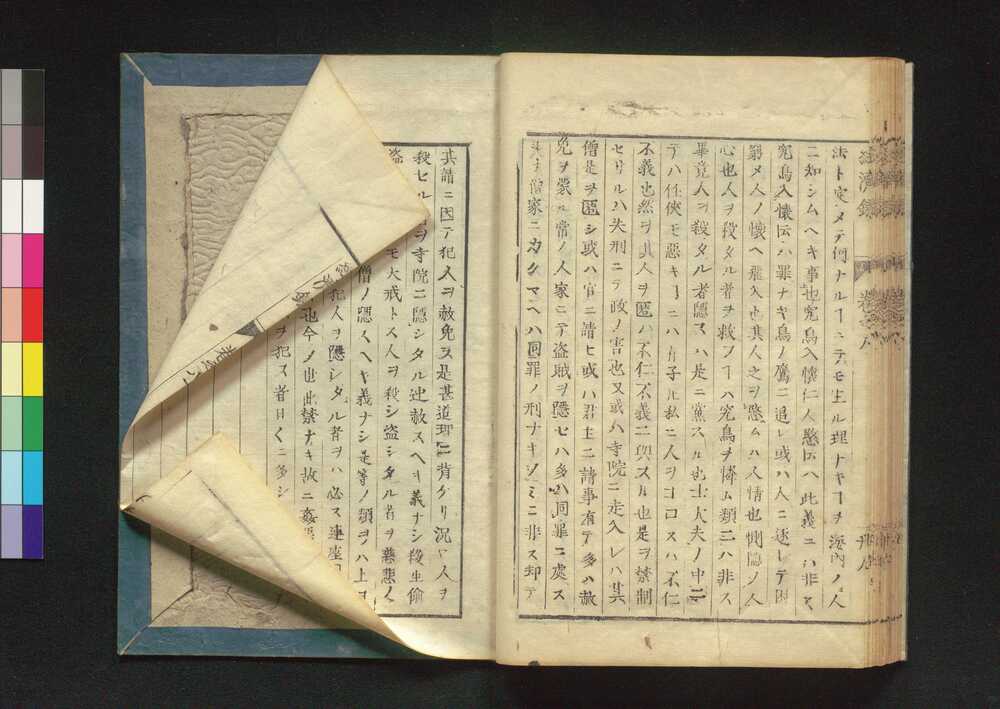 法ト定メテ何ナル丁ニテモ生ル理ナキ丁ヲ海内ノ人
ニ知シムヘキ事也窮鳥入懐仁人愍云ハ此義ニハ非ス
窮鳥入懐云ハ罪ナキ鳥ノ鷹ニ追レ或ハ人ニ逐レテ困
窮メ人ノ懐ヘ飛入也其人之ヲ愍ムハ人情也惻隠ノ人
心也人ヲ殺タル者ヲ救フ丁ハ窮鳥ヲ憐ム類ニハ非ス
畢竟人ヲ殺タル者隠スハ是ニ党スル也士大夫ノ中ニ
テハ任侠モ悪キ丁ニハ有子ル私ニ人ヲコロスハ不仁
不義也然ヲ其人ヲ匿ハ不仁不義ニ与スル也是ヲ禁制
セサルハ失刑ニテ政ノ害也又或ハ寺院ニ走入レハ其
僧是ヲ匿シ或ハ官ニ請ヒ或ハ君主ニ請事有テ多ハ赦
免ヲ蒙ル常ノ人家ニテ盗賊ヲ隠セハ多ハ同罪ニ処ス
夫ヲ僧家ニカクマヘハ同罪ノ刑ナキノミニ非ス却テ
其請ニ因テ犯人ヲ赦免ス是甚道理ニ背ケリ況ヤ人ヲ
殺セルヲ寺院ニ隠シタル迚赦スヘキ義ナシ殺生偸
盗 モ大戒トス人ヲ殺シ盗シタル者ヲ慈悲ノ
僧ノ隠スヘキ義ナシ是等ノ類ヲハ上ヨ
犯人ヲ隠シタル者ヲハ必ス連座
也今ノ世此禁ナキ故ニ姦
ヲ犯ス者日々ニ多シ